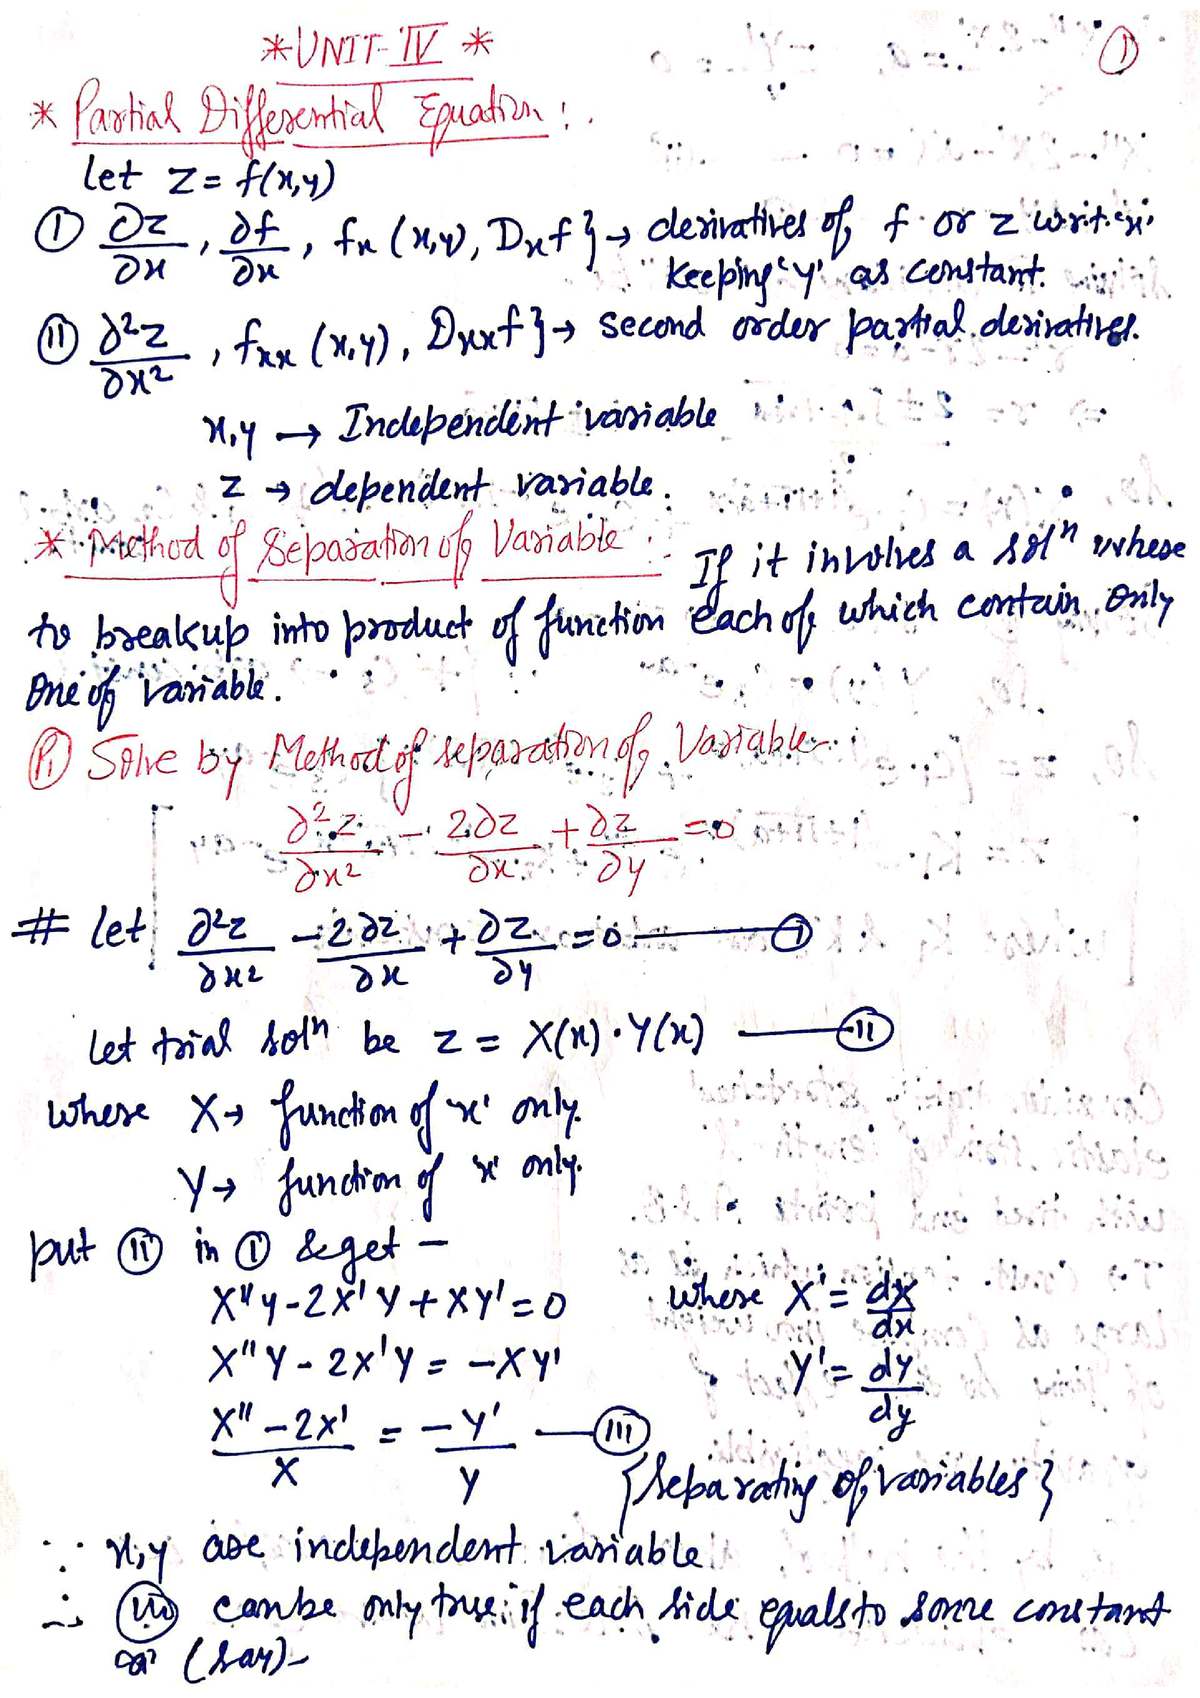 *UNIT-IV*
①
* Partial Differential Equation :.
Let z = f(x,y)
Ⓘ ∂z/∂x , ∂f/∂x , fx (x,y), Dxf } → derivatives of f or z w.r.t. 'x'
keeping 'y' as constant.
Ⓘⓘ ∂²z/∂x² , fxx (x,y), Dxxf } → second order partial derivatives.
x,y → Independent variable
z → dependent variable.
* Method of Separation of Variable : If it involves a solⁿ where
to breakup into product of function each of which contain only
one of variable.
(P1) Solve by Method of separation of Variable
∂²z/∂x² - 2∂z/∂x + ∂z/∂y = 0
# let ∂²z/∂x² - 2∂z/∂x + ∂z/∂y = 0 — Ⓘ
Let trial solⁿ be z = X(x)·Y(x) — (II)
where X → function of 'x' only.
Y → function of 'x' only.
put (II) in Ⓘ & get —
X"y - 2X'Y + XY' = 0 where X' = dX/dx
X"Y - 2X'Y = -XY' Y' = dY/dy
X" - 2X'/X = -Y'/Y — (III)
{Separating of variables}
∵ x,y are independent variable
∴ (III) can be only true, if each side equals to some constant
'a' (say)-